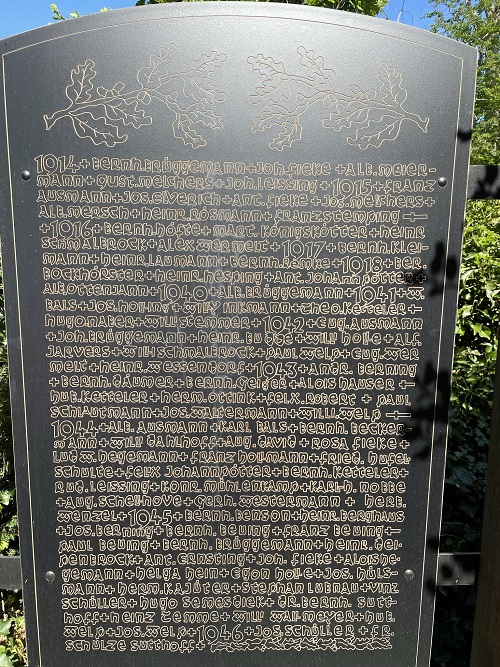 1914 + BERNH. BRÜGGEMANN + JOH. FIEKE + ALB. MEIER-
MANN + GUST. MELCHERS + JOH. LEISSING + 1915 + FRANZ
AUSMANN + JOS. EIVERICH + ANT. FIEKE + JOS. MELCHERS +
ALB. MERSCH + HEINR. ROSMANN + FRANZ STEMPING +
+ 1916 + BERNH. HÖFTE + MARC. KÖNIGSKÖTTER + HEINR
SCHMALBROCK + ALEX WERMELT + 1917 + BERNH. KLEI-
MANN + HEINR. LAUMANN + BERNH. REMKE + 1918 + BER.
BOCKHORSTER + HEINR. HESPING + ANT. JOHANNPÖTTER +
ALB. OTTENJANN + 1940 + ALB. BRÜGGEMANN + 1941 + W.
BALS + JOS. HOLLING + WILLY INKMANN + THEO. KETTELER +
HUGO NABER + WILLI STEMMER + 1942 + EUG. AUSMANN
+ JOH. BRÜGGEMANN + HEINR. BUDDE + WILLI HOLLE + ALF.
JARVERS + WILLI SCHMALBROCK + PAUL WELP + EUG. WER
MELT + HEINR. WESSENDORF + 1943 + ANDR. BERNING
+ BERNH. DÄUMER + BERNH. GEIGER + ALOIS HAUSER +
HUB. KETTELER + HERM. OTTINK + FELX. ROBERT + PAUL
SCHLAUTMANN + JOS. WALTERMANN + WILLI WELP +
1944 + ALB. AUSMANN + KARL BALS + BERNH. BECKER-
MANN + WILLI DAHLHOFF + AUG. DAVID + ROSA FIEKE +
LUDW. HEGEMANN + FRANZ HOLLMANN + FRIED. HUFEL
SCHULTE + FELIX JOHANNPÖTTER + BERNH. KETTELER +
RUD. LEISSING + KONR. MÜHLENKAMP + KARL-H. NOBBE
+ AUG. SCHELLHOVE + GERH. WESTERMANN + HERB.
WENZEL + 1945 + BERNH. BENSON + HEINR. BERGHAUS
+ JOS. BERNING + BERNH. BEUING + FRANZ BEUING +
PAUL BEUING + BERNH. BRÜGGEMANN + HEINR. DEI-
PENBROCK + ANT. ERNSTING + JOH. FIEKE + ALOIS HE-
GEMANN + HELGA HEIM + EGON HOLLE + JOS. HÜLS-
MANN + HERM. KAJÜTER + STEPHAN LUBNAU + VINZ
SCHÜLLER + HUGO SEMESDIEK + DR. BERNH. SUTT-
HOFF + HEINZ TEMME + WILLI WALLMEYER + HUB.
WELP + JOS. WELP + 1946 + JOS. SCHÜLLER + FR.
SCHULZE SUTTHOFF +